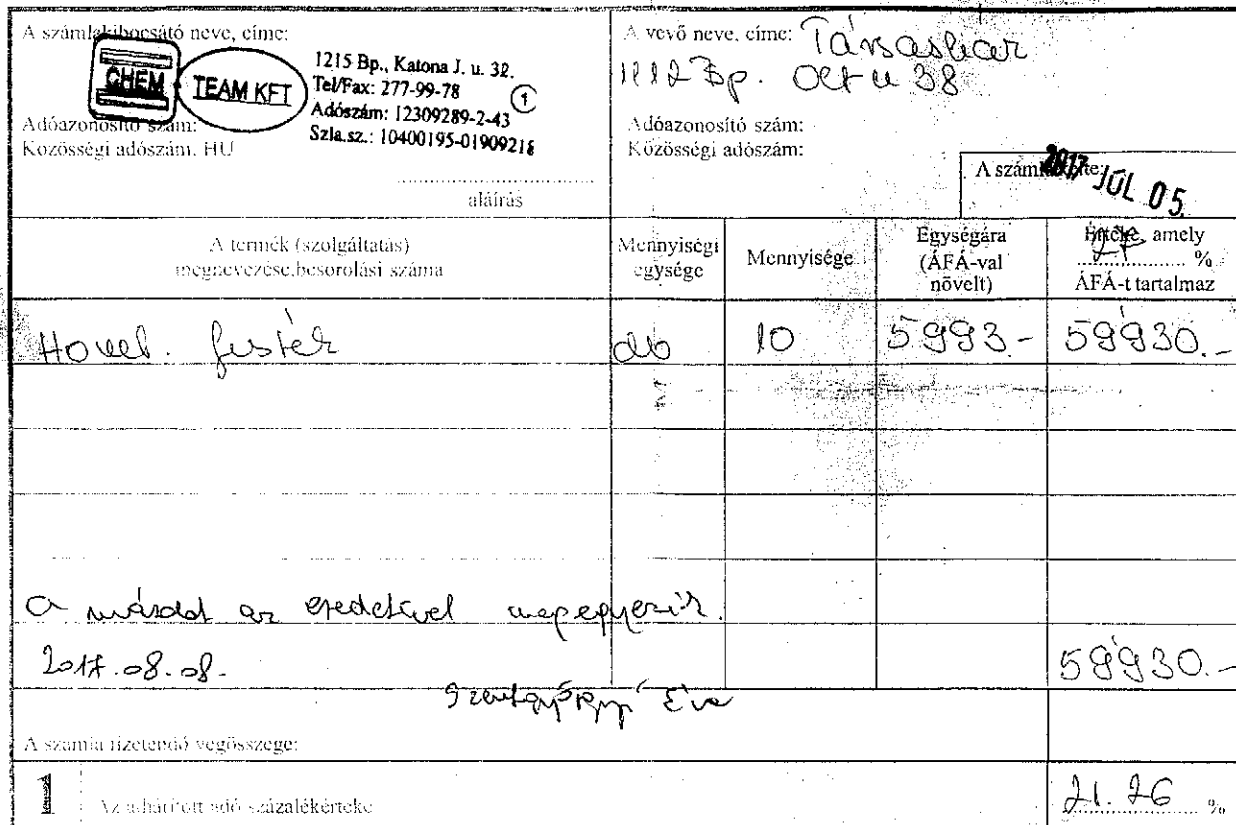 A számlakibocsátó neve, címe:
CHEM TEAM KFT
1215 Bp., Katona J. u. 32.
Tel/Fax: 277-99-78
1
Adószám: 12309289-2-43
Szla.sz.: 10400195-01909218
Adóazonosító szám:
Közösségi adószám. HU
aláírás
A vevő neve, címe: Társasház
1112 Bp. Olt u 38
Adóazonosító szám:
Közösségi adószám:
A számla kelte:
2017 JÚL 05.
A termék (szolgáltatás)
megnevezése,besorolási száma
Mennyiségi
egysége
Mennyisége
Egységára
(ÁFÁ-val
növelt)
Értéke, amely
27 %
ÁFÁ-t tartalmaz
festék db 10 5993.- 59930.-
a másolat az eredetivel megegyezik.
2017.08.08. 59930.-
Szentgyörgyi Éva
A számla fizetendő végösszege:
1 Az áthárított adó százalékértéke 21.26 %